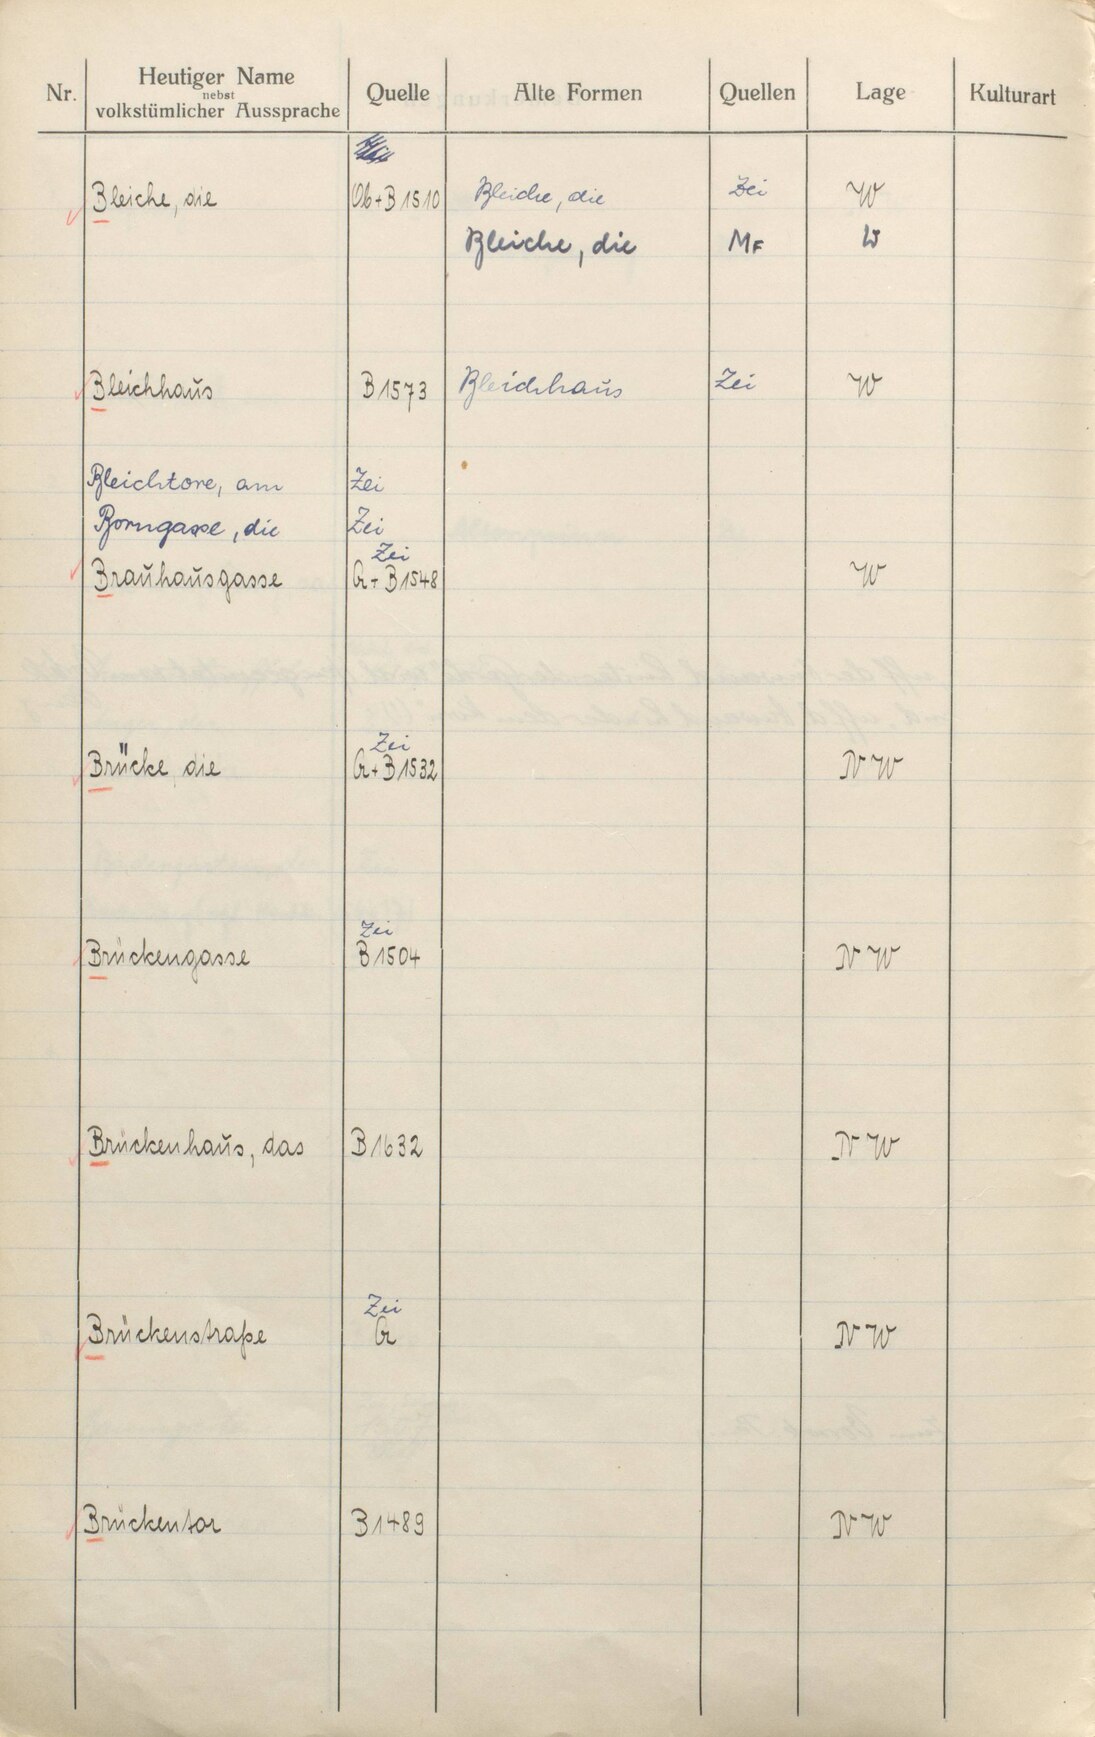 Nr. Heutiger Name nebst volkstümlicher Aussprache Quelle Alte Formen Quellen Lage Kulturart
Bleiche, die Ob+B1510 Bleiche, die Zei W
Bleiche, die MF W
Bleichhaus B1573 Bleichhaus Zei W
Bleichtore, am Zei
Borngasse, die Zei
Zei
Brauhausgasse Gr+B1548 W
Zei
Brücke, die Gr+B1532 NW
Zei
Brückengasse B1504 NW
Brückenhaus, das B1632 NW
Zei
Brückenstraße Gr NW
Brückentor B1489 NW